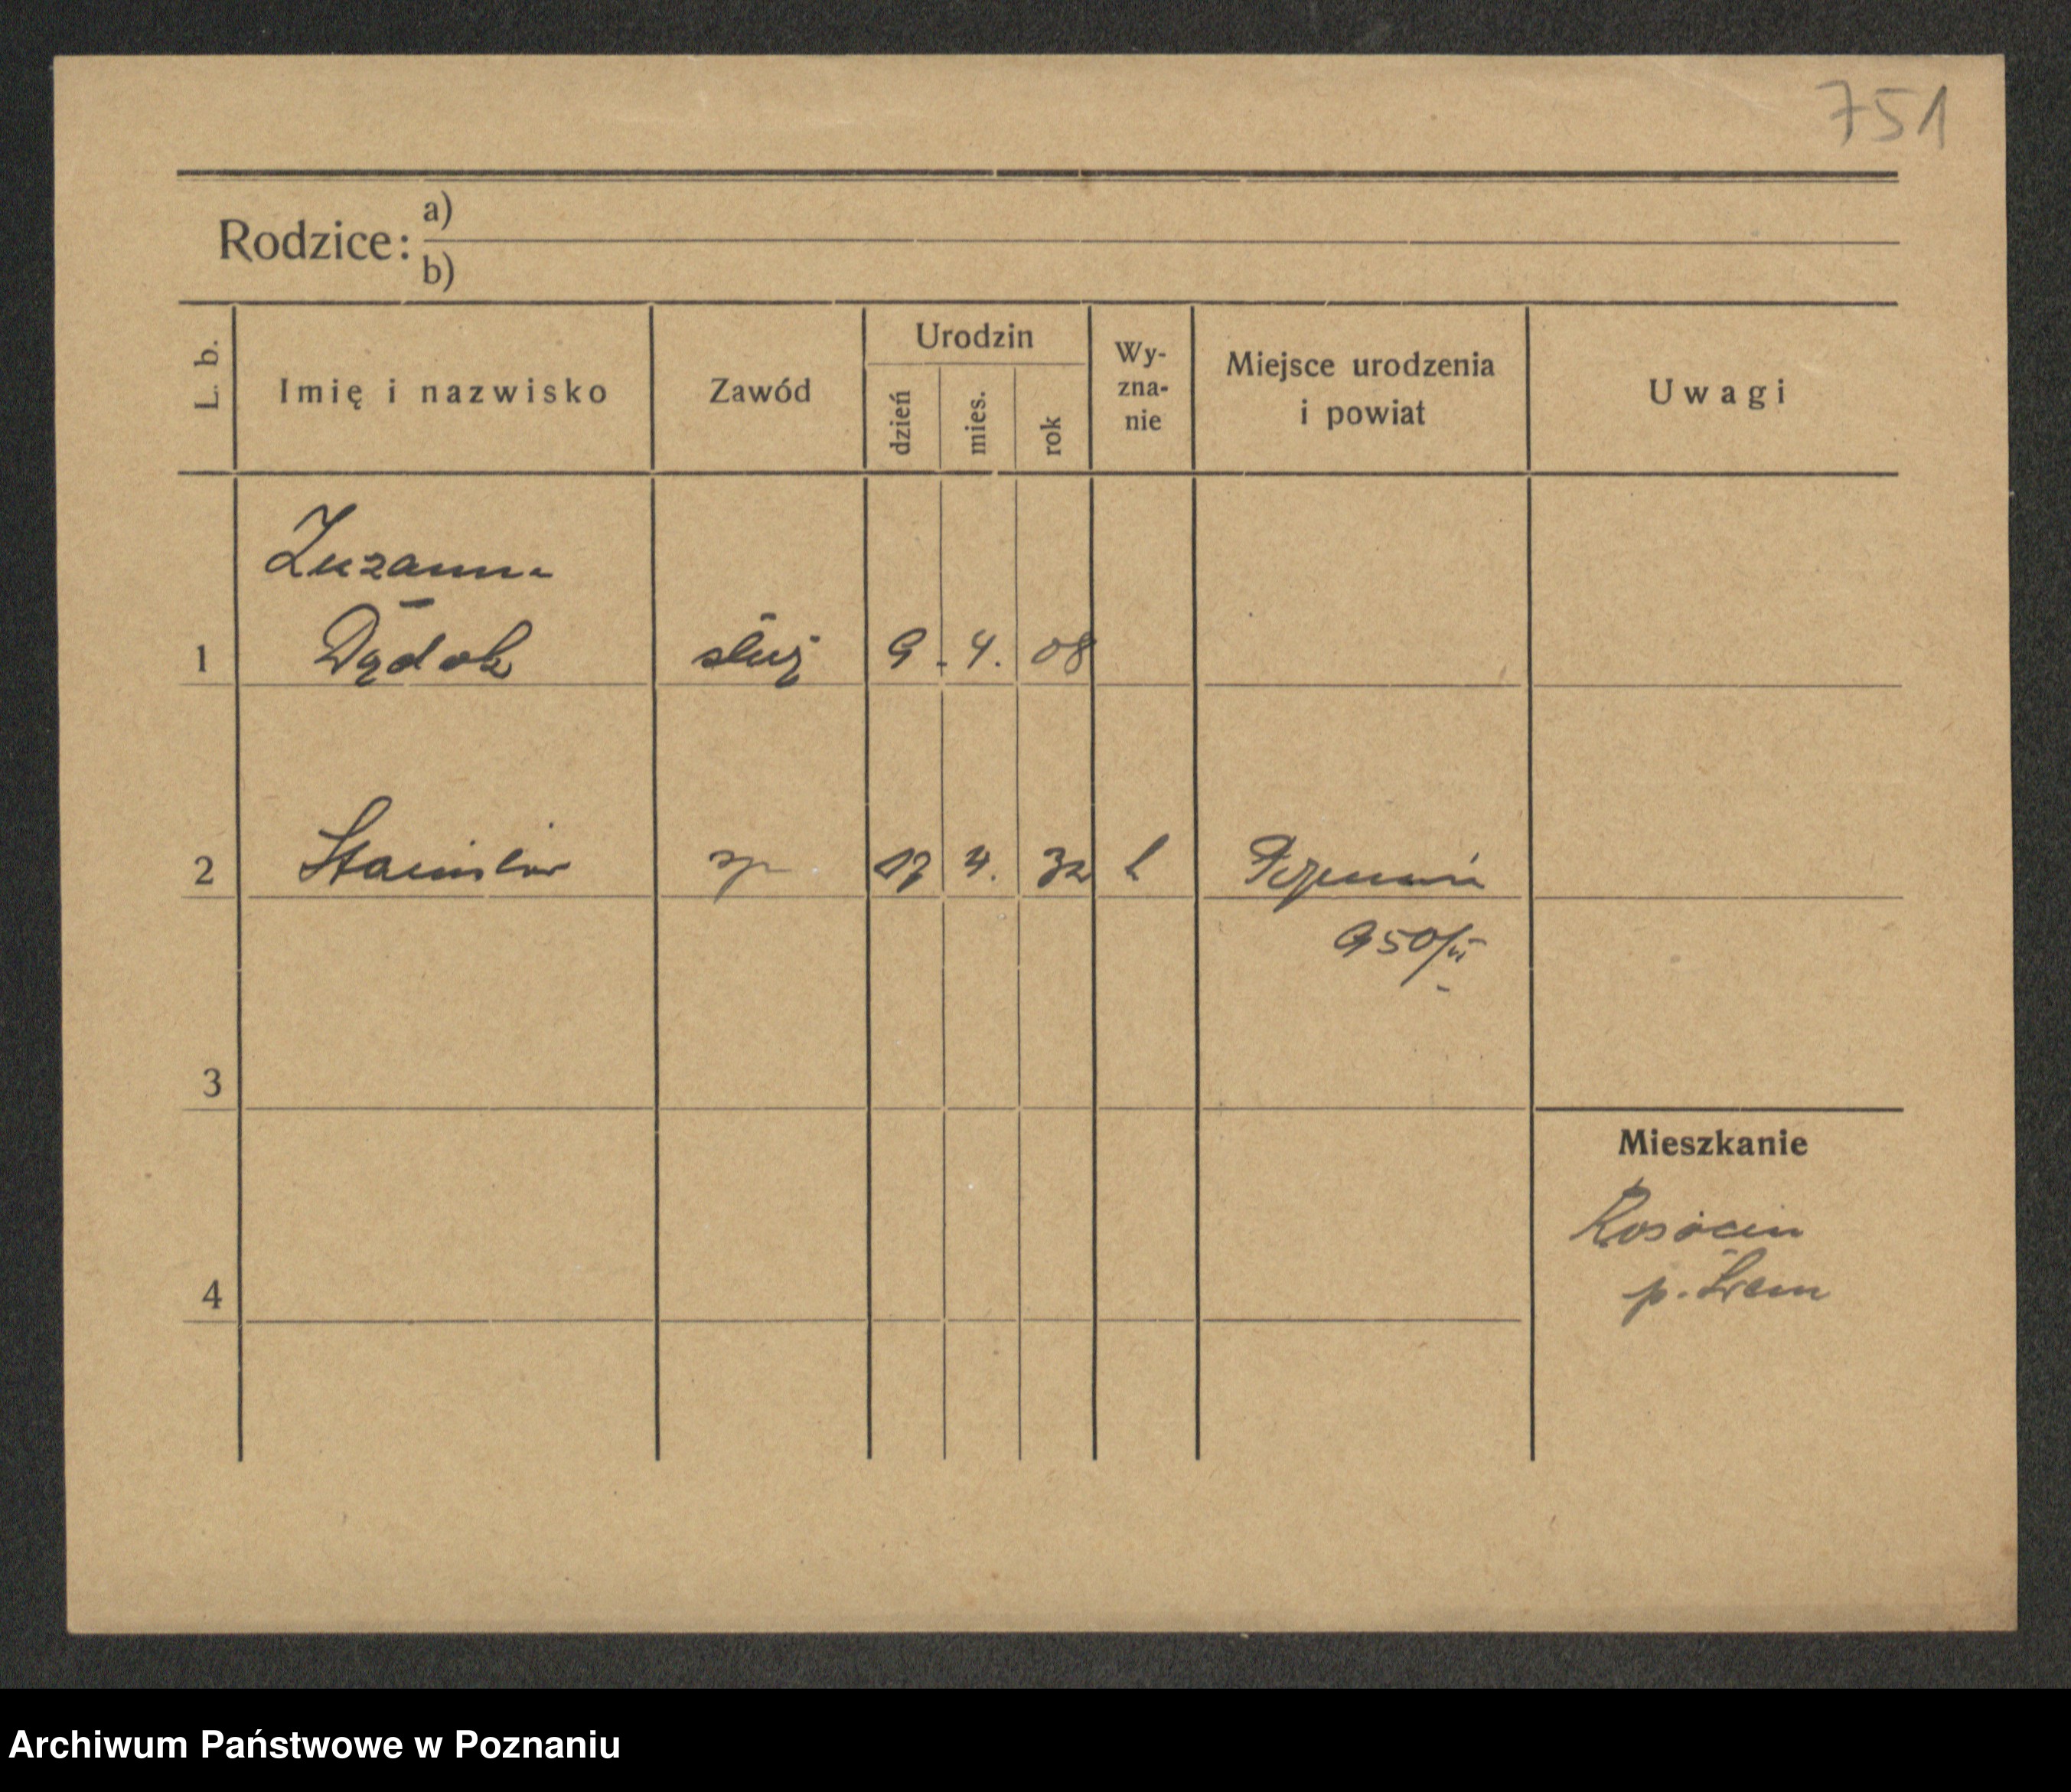 751
Rodzice:
a)
b)
L. b.
Imię i nazwisko
Zawód
Urodzin
dzień
mies.
rok
Wy-
zna-
nie
Miejsce urodzenia
i powiat
Uwagi
Zuzanna
1 Dądak służ 9. 4. 08
2 Stanisław 17 4. 32
950/II
3
Mieszkanie
Rosocin
4
p. Śrem
Archiwum Państwowe w Poznaniu